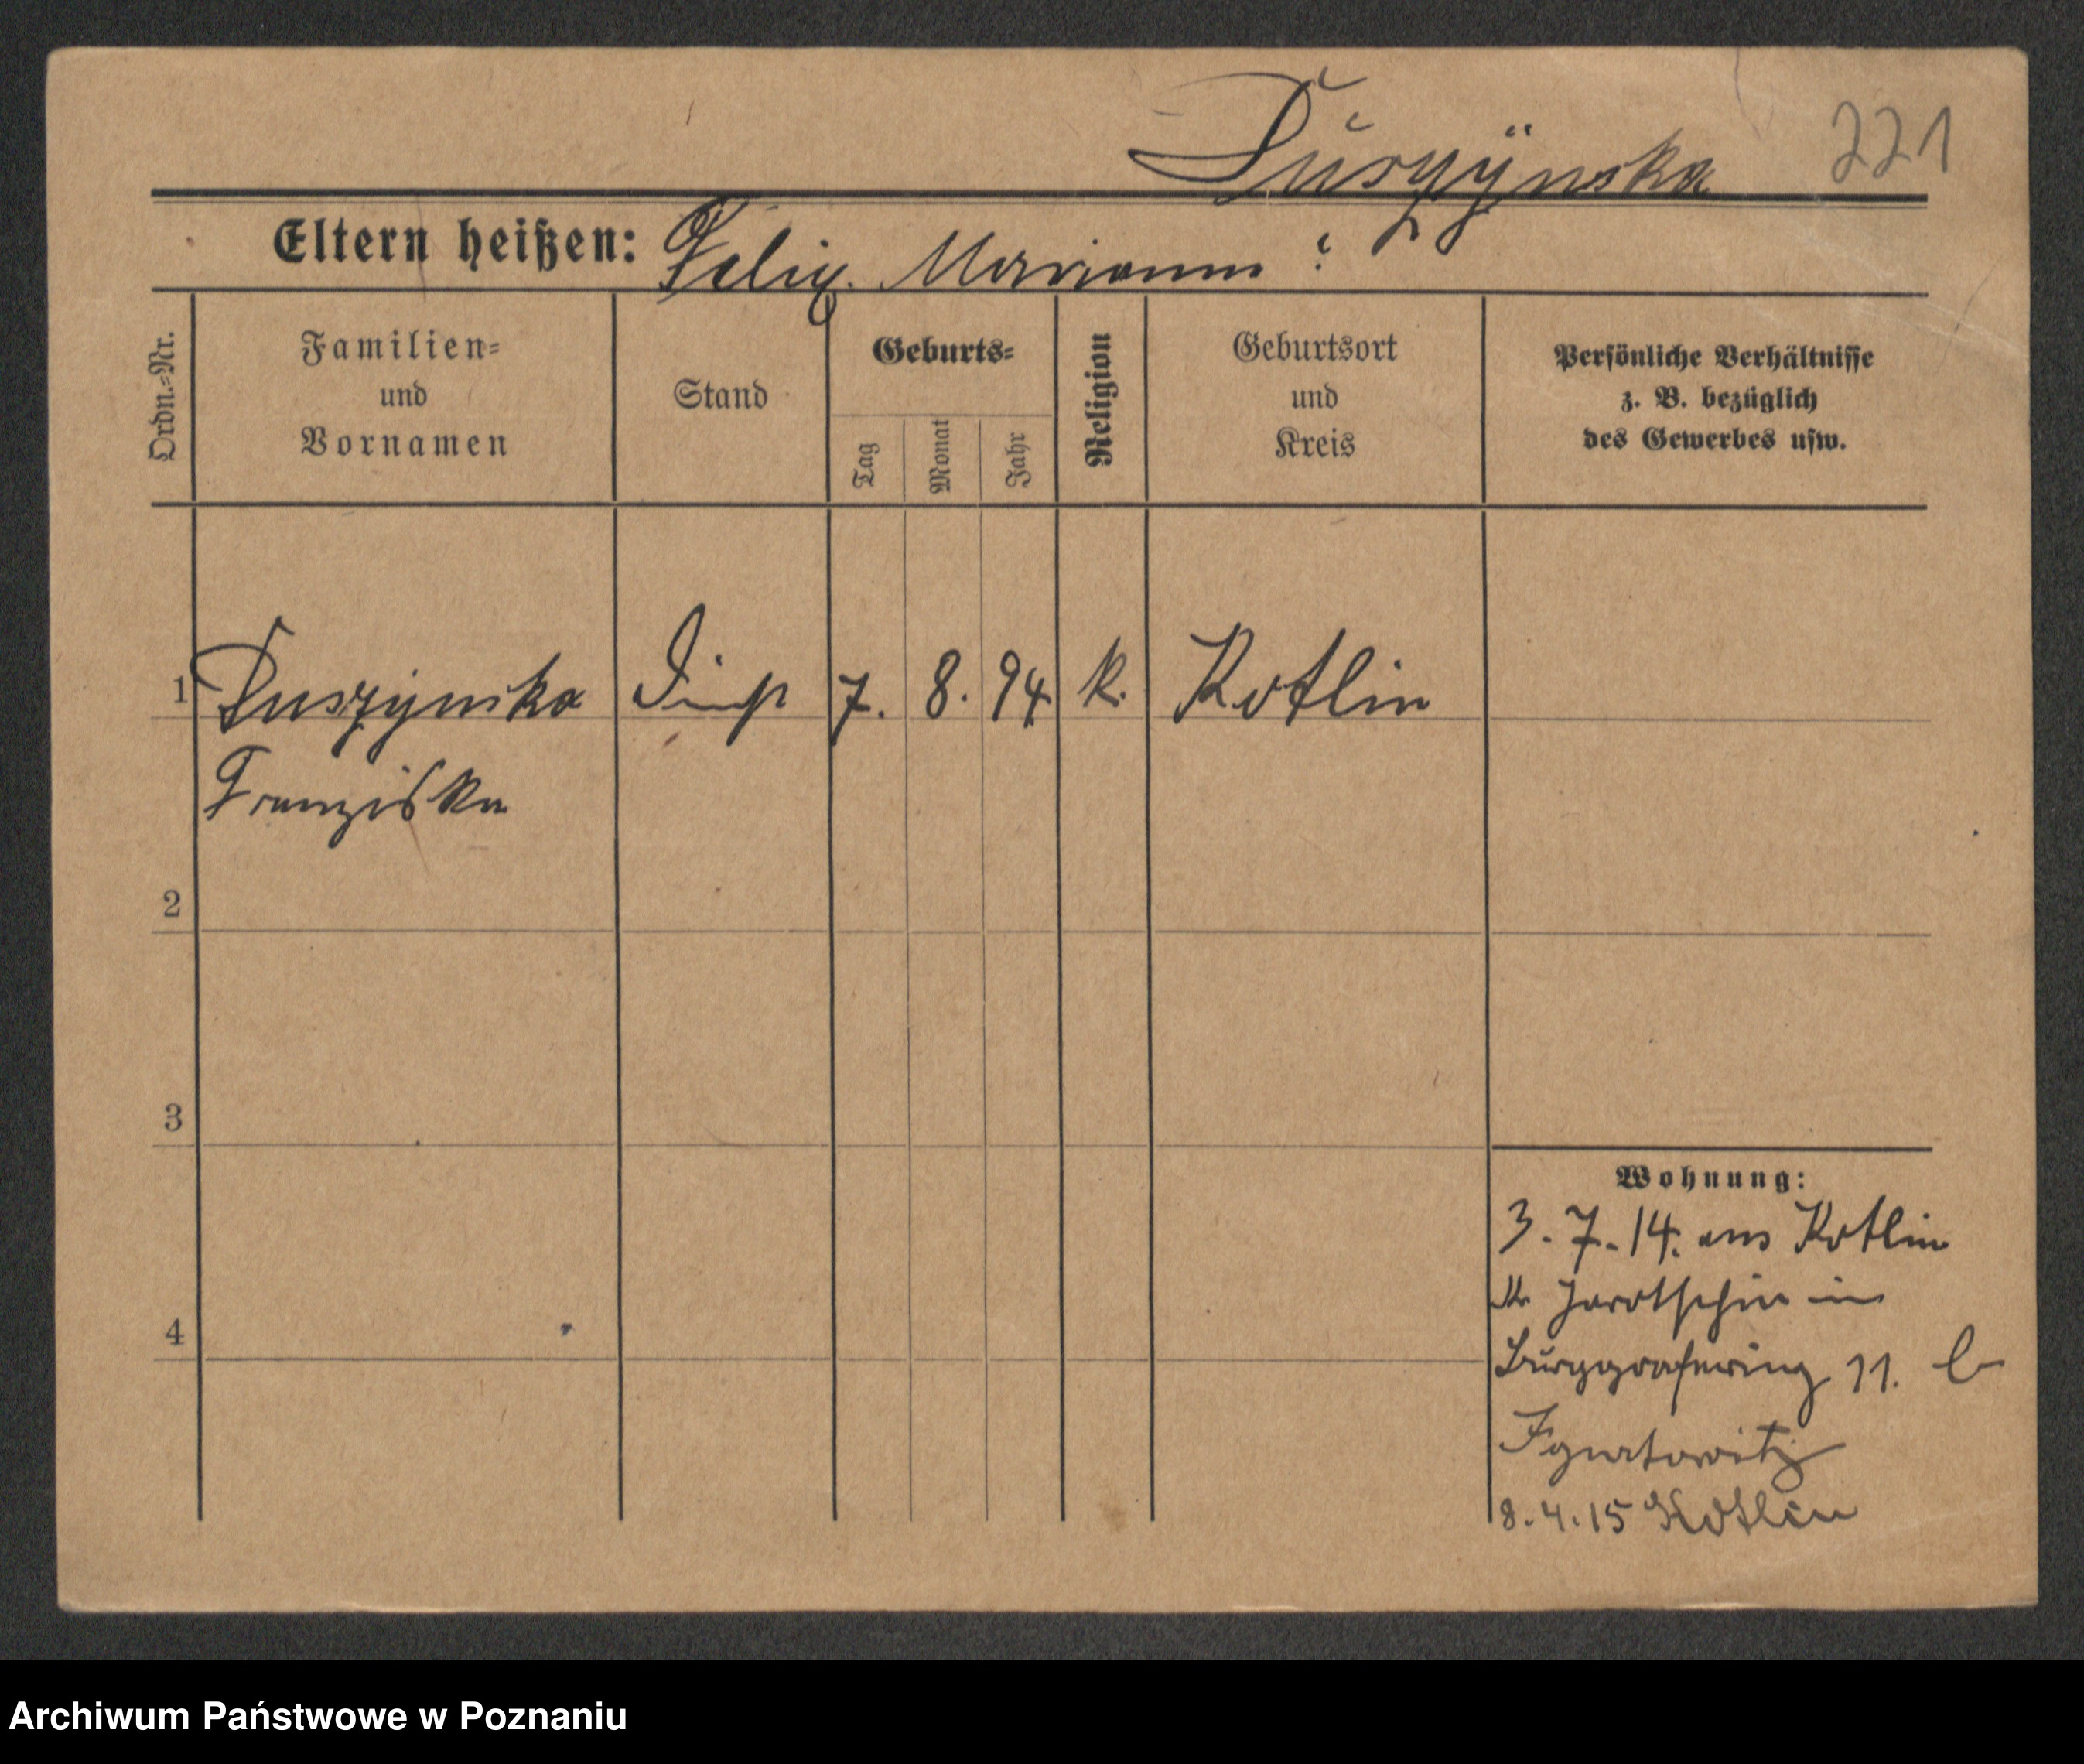 Duszÿnska 221
Eltern heißen: Felix. Mariann ?
Ordn.-Nr.
Familien-
und
Vornamen
Stand
Geburts-
Tag
Monat
Jahr
Religion
Geburtsort
und
Kreis
Persönliche Verhältnisse
z. B. bezüglich
des Gewerbes usw.
1 Duszynska 7. 8. 94 k. Kotlin
Franziska
2
3
4
Wohnung:
3. 7. 14. aus Kotlin
Kr Jarotschin in
Burggrafenring 11. b
Ignatowitz
8. 4. 15 Kotlin
Archiwum Państwowe w Poznaniu